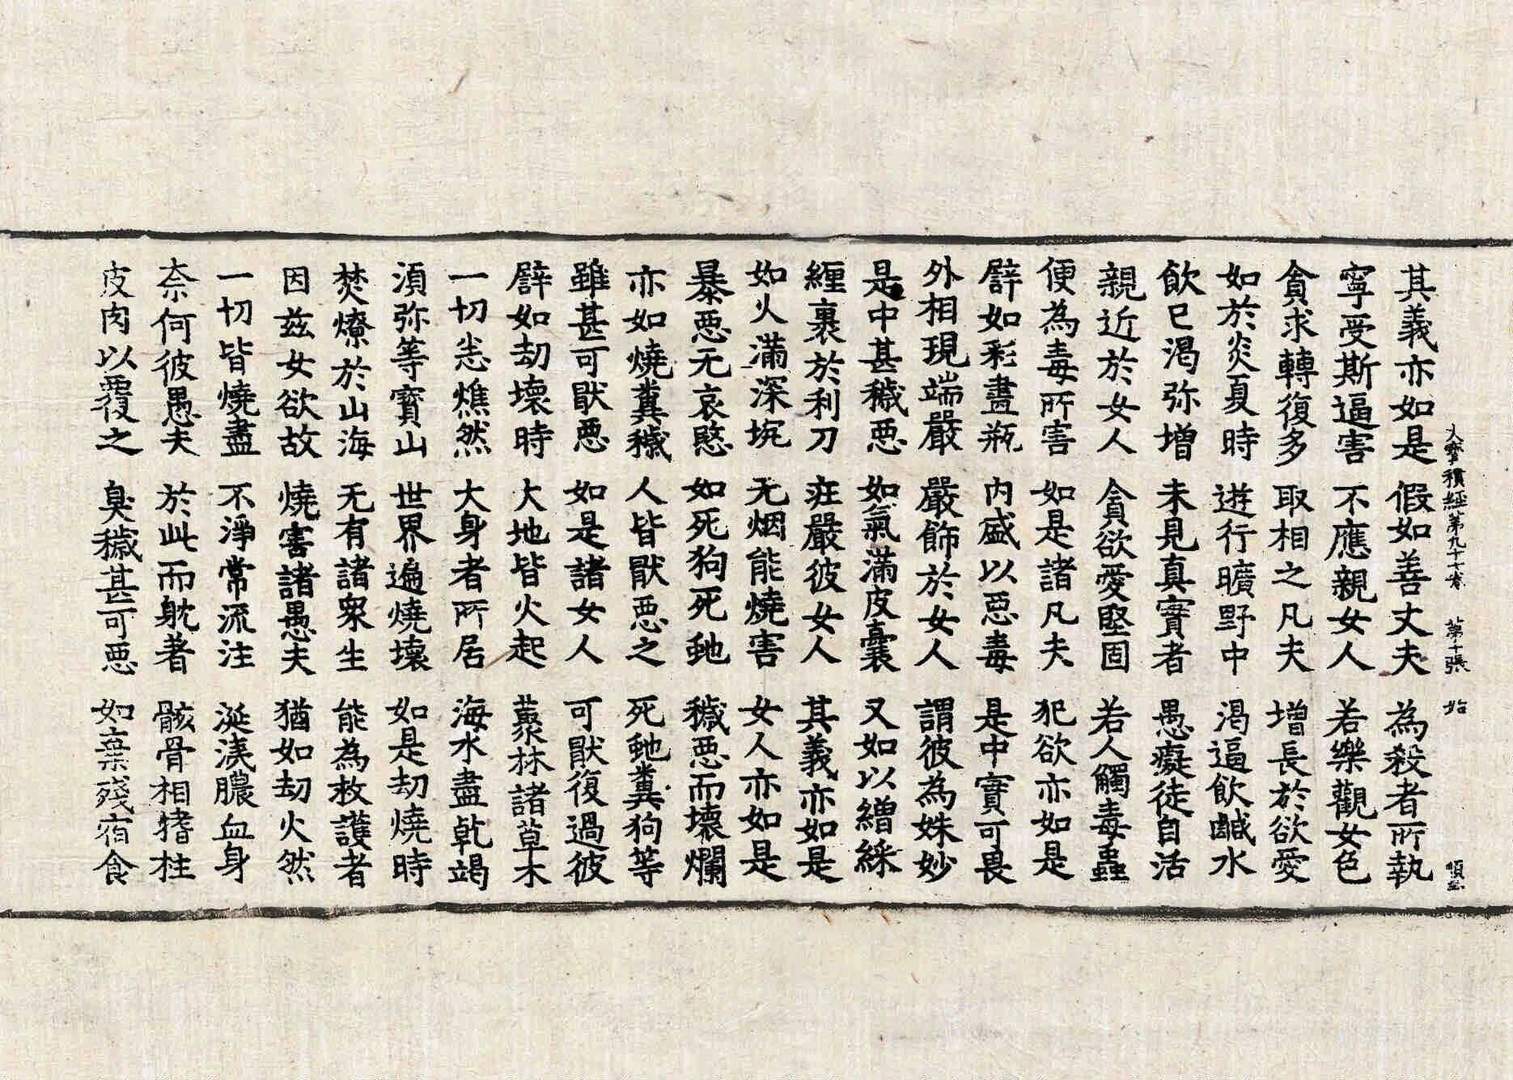 大寶積經第九十七 第十張 始
其義亦如是 假如善丈夫 為殺者所執
寧受斯逼害 不應親女人 若樂觀女色
貪求轉復多 取相之凡夫 增長於欲愛
如於炎夏時 遊行曠野中 渴逼飲鹹水
飲已渴弥增 未見真實者 愚癡徒自活
親近於女人 貪欲愛堅固 若人觸毒蟲
便為毒所害 如是諸凡夫 犯欲亦如是
譬如彩畫瓶 內盛以惡毒 是中實可畏
外相現端嚴 嚴飾於女人 謂彼為姝妙
是中甚穢惡 如氣滿皮囊 又如以繒綵
纏裹於利刀 莊嚴彼女人 其義亦如是
如火滿深坑 无烟能燒害 女人亦如是
暴惡无哀愍 如死狗死虵 穢惡而壞爛
亦如燒糞穢 人皆猒惡之 死虵糞狗等
雖甚可猒惡 如是諸女人 可猒復過彼
譬如劫壞時 大地皆火起 藂林諸草木
一切悉燋然 大身者所居 海水盡乾竭
湏弥等寶山 世界遍燒壞 如是劫燒時
焚燎於山海 无有諸眾生 能為救護者
因茲女欲故 燒害諸愚夫 猶如劫火然
一切皆燒盡 不淨常流注 涎洟膿血身
奈何彼愚夫 於此而躭著 骸骨相搘柱
皮肉以覆之 臭穢甚可惡 如棄殘宿食